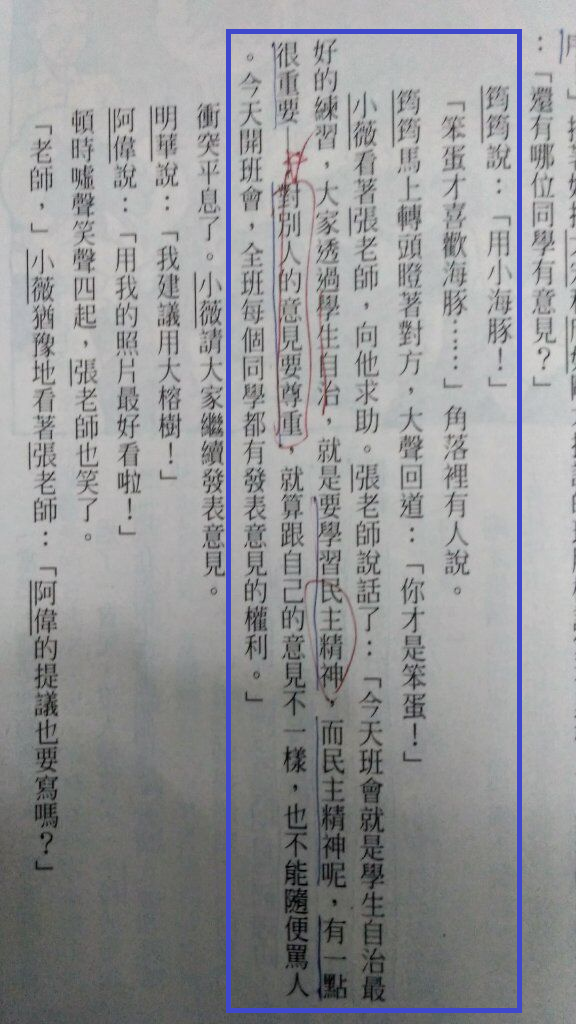 ：「還有哪位同學有意見？」
筠筠說：「用小海豚！」
「笨蛋才喜歡海豚……」角落裡有人說。
筠筠馬上轉頭瞪著對方，大聲回道：「你才是笨蛋！」
小薇看著張老師，向他求助。張老師說話了：「今天班會就是學生自治最
好的練習，大家透過學生自治，就是要學習民主精神，而民主精神呢，有一點
很重要——對別人的意見要尊重，就算跟自己的意見不一樣，也不能隨便罵人
。今天開班會，全班每個同學都有發表意見的權利。」
衝突平息了。小薇請大家繼續發表意見。
明華說：「我建議用大榕樹！」
阿偉說：「用我的照片最好看啦！」
頓時噓聲笑聲四起，張老師也笑了。
「老師，」小薇猶豫地看著張老師：「阿偉的提議也要寫嗎？」